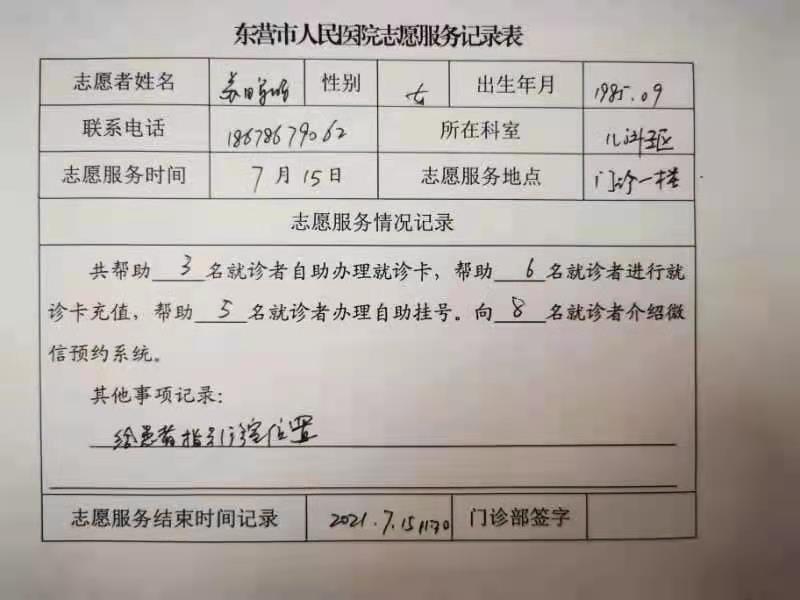 东营市人民医院志愿服务记录表
志愿者姓名 性别 女 出生年月 1985.09
联系电话 18678679062 所在科室 儿科五区
志愿服务时间 7月15日 志愿服务地点 门诊一楼
志愿服务情况记录
共帮助3名就诊者自助办理就诊卡，帮助6名就诊者进行就
诊卡充值，帮助5名就诊者办理自助挂号。向8名就诊者介绍微
信预约系统。
其他事项记录：
给患者指引诊室位置
志愿服务结束时间记录 2021.7.15 11:30 门诊部签字